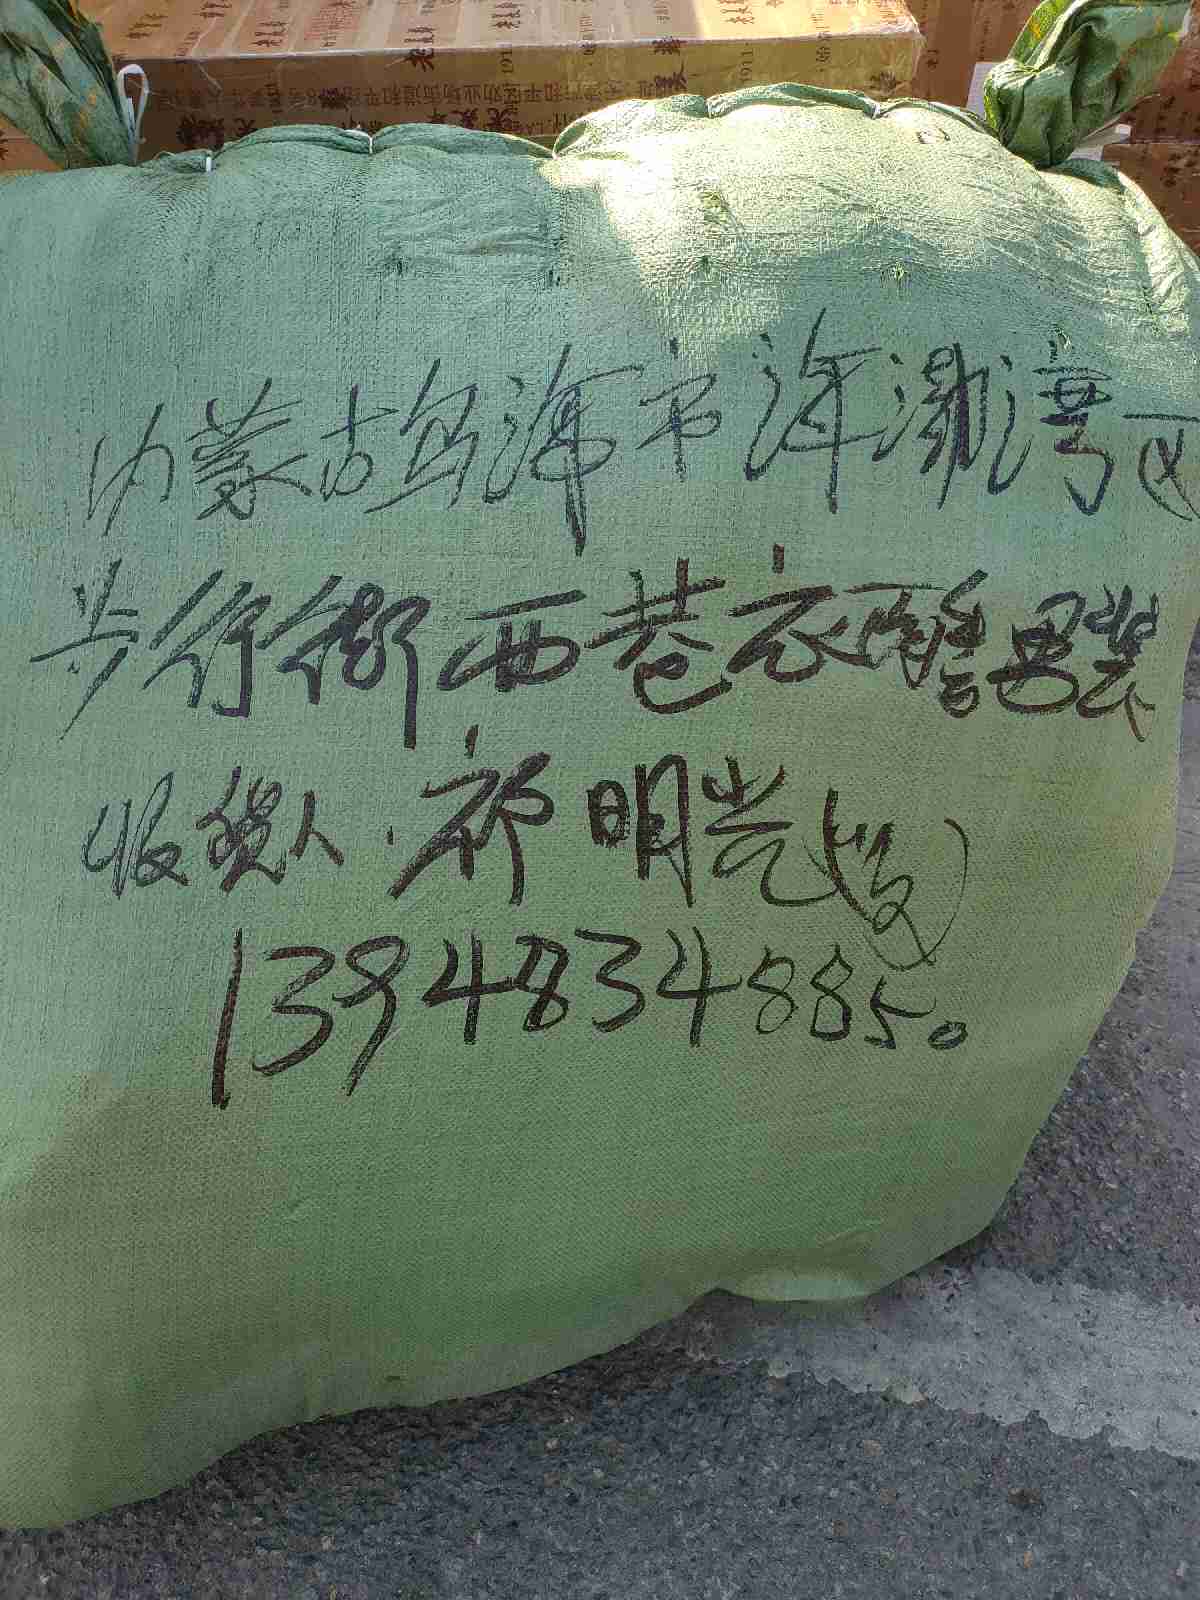 内蒙古乌海市海渤湾区
步行街西巷衣酷男装
收货人.祁明光(收)
13948348850